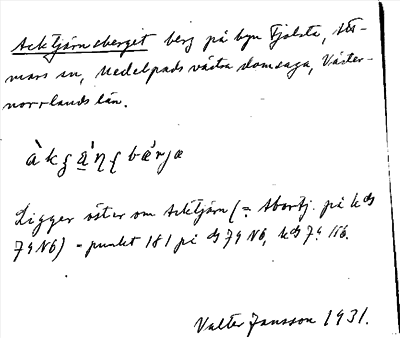 Acktjärnsberget berg på byn Fjolsta, Att-
mars sn, Medelpads västra domsaga, Väster-
norrlands län.
Ligger öster om Acktjärn (= Abortj. på kds
74 N6) - punkt 181 på ds 74 N6, kds 74 N6.
Valter Jansson 1931.